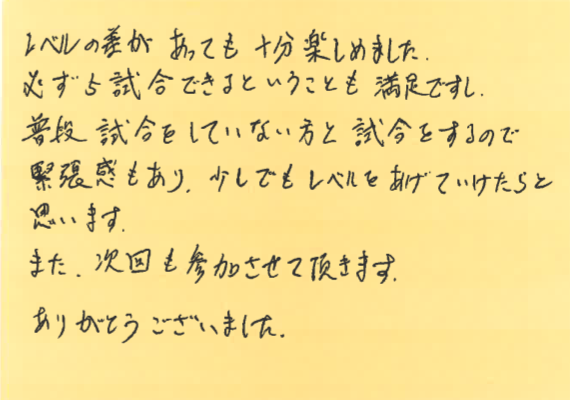 レベルの差が あっても 十分楽しめました.
必ず5試合できるということも 満足ですし.
普段 試合をしていない方と 試合をするので
緊張感もあり, 少しでもレベルをあげていけたらと
思います.
また, 次回も参加させて頂きます.
ありがとうございました.